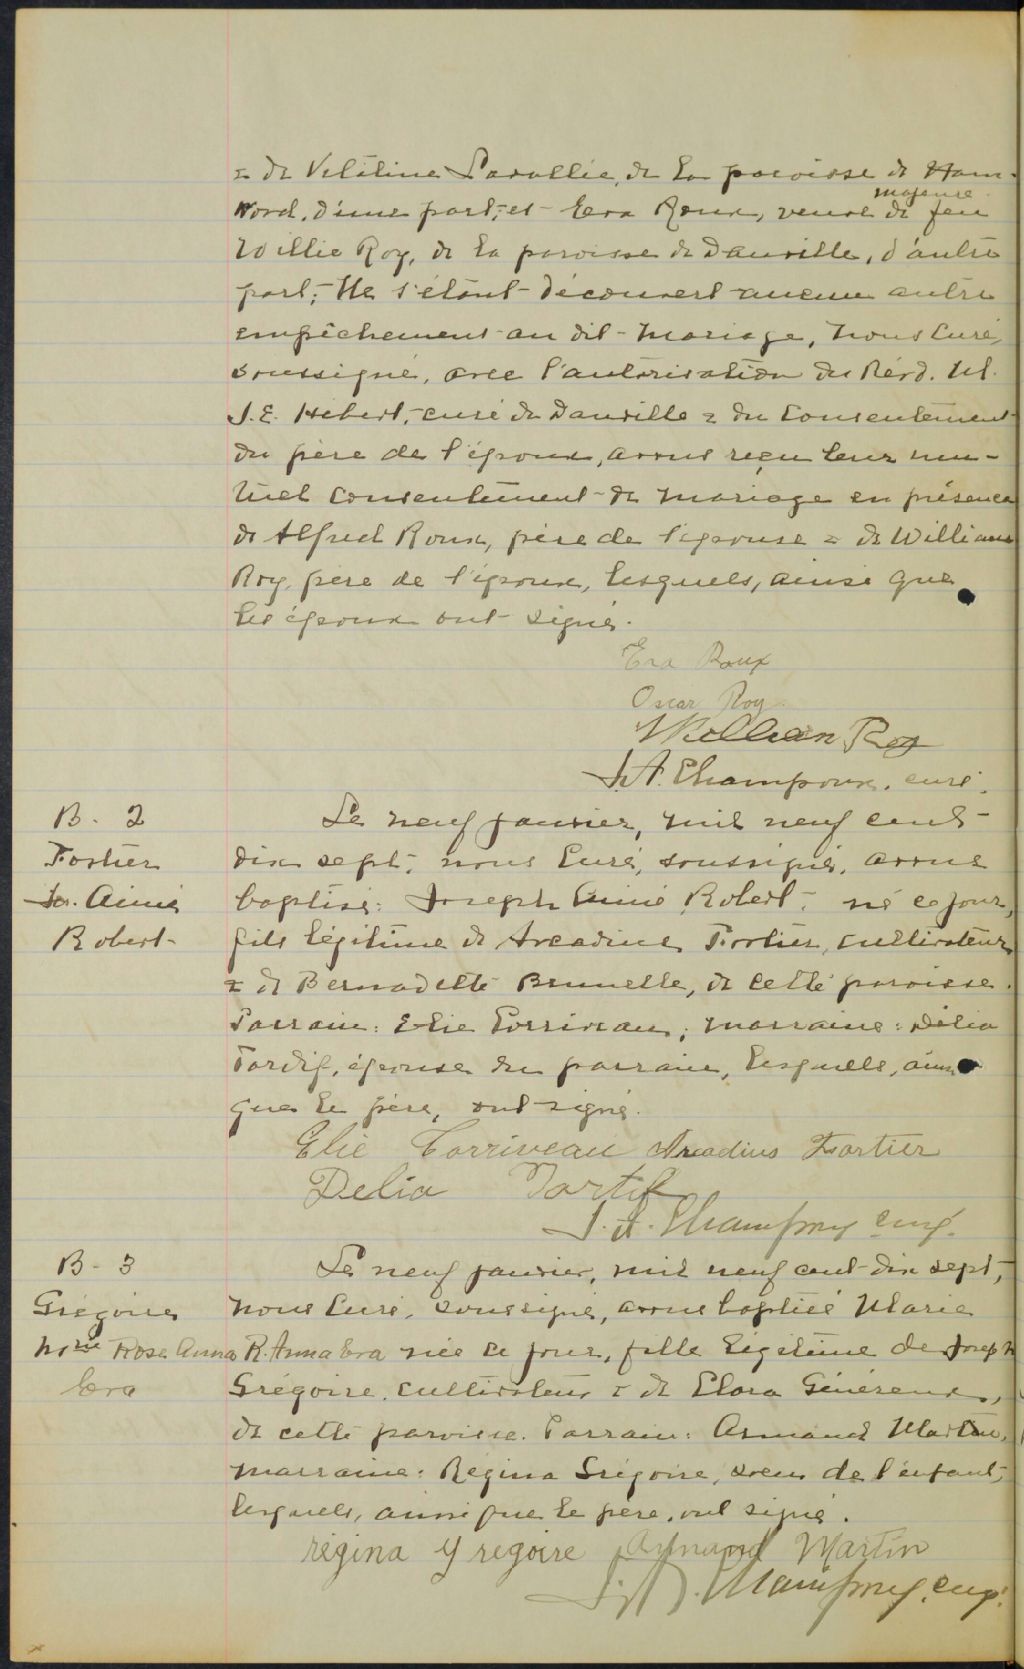 & de Vitaline Lavallée, de la paroisse de Ham-
Nord, d'une part, et Eva Roux, veuve majeure de feu
Willie Roy, de la paroisse de Danville, d'autre
part; Ne s'étant découvert aucun autre
empêchement au dit mariage, nous curé,
soussigné, avec l'autorisation du Révd. M.
J. E. Hébert, curé de Danville & du consentement
du père de l'époux, avons reçu leur mu-
tuel consentement de mariage en présence
de Alfred Roux, père de l'épouse & de William
Roy, père de l'époux, lesquels, ainsi que
les époux ont signé.
Eva Roux
Oscar Roy
William Roy
J. A. Champoux, curé.
B. 2
Fortier
Jos. Aimé
Robert
Le neuf janvier, mil neuf cent
dix sept, nous curé, soussigné, avons
baptisé: Joseph Aimé Robert, né ce jour,
fils légitime de Arcadius Fortier, cultivateur
& de Bernadette Brunelle, de cette paroisse.
Parrain: Elie Corriveau; marraine: Délia
Tardif, épouse du parrain, lesquels, ainsi
que le père, ont signé.
Elie Corriveau Arcadius Fortier
Delia Tartif
J. A. Champoux curé.
B. 3
Grégoire
Mie Rose Anna
Eva
Le neuf janvier, mil neuf cent dix sept,
nous curé, soussigné, avons baptisé Marie
R. Anna Eva née ce jour, fille légitime de Joseph
Grégoire, cultivateur & de Clara Généreux,
de cette paroisse. Parrain: Armand Martin,
marraine: Regina Grégoire, soeur de l'enfant,
lesquels, ainsi que le père, ont signé.
régina gregoire Armand Martin
J. A. Champoux, curé.